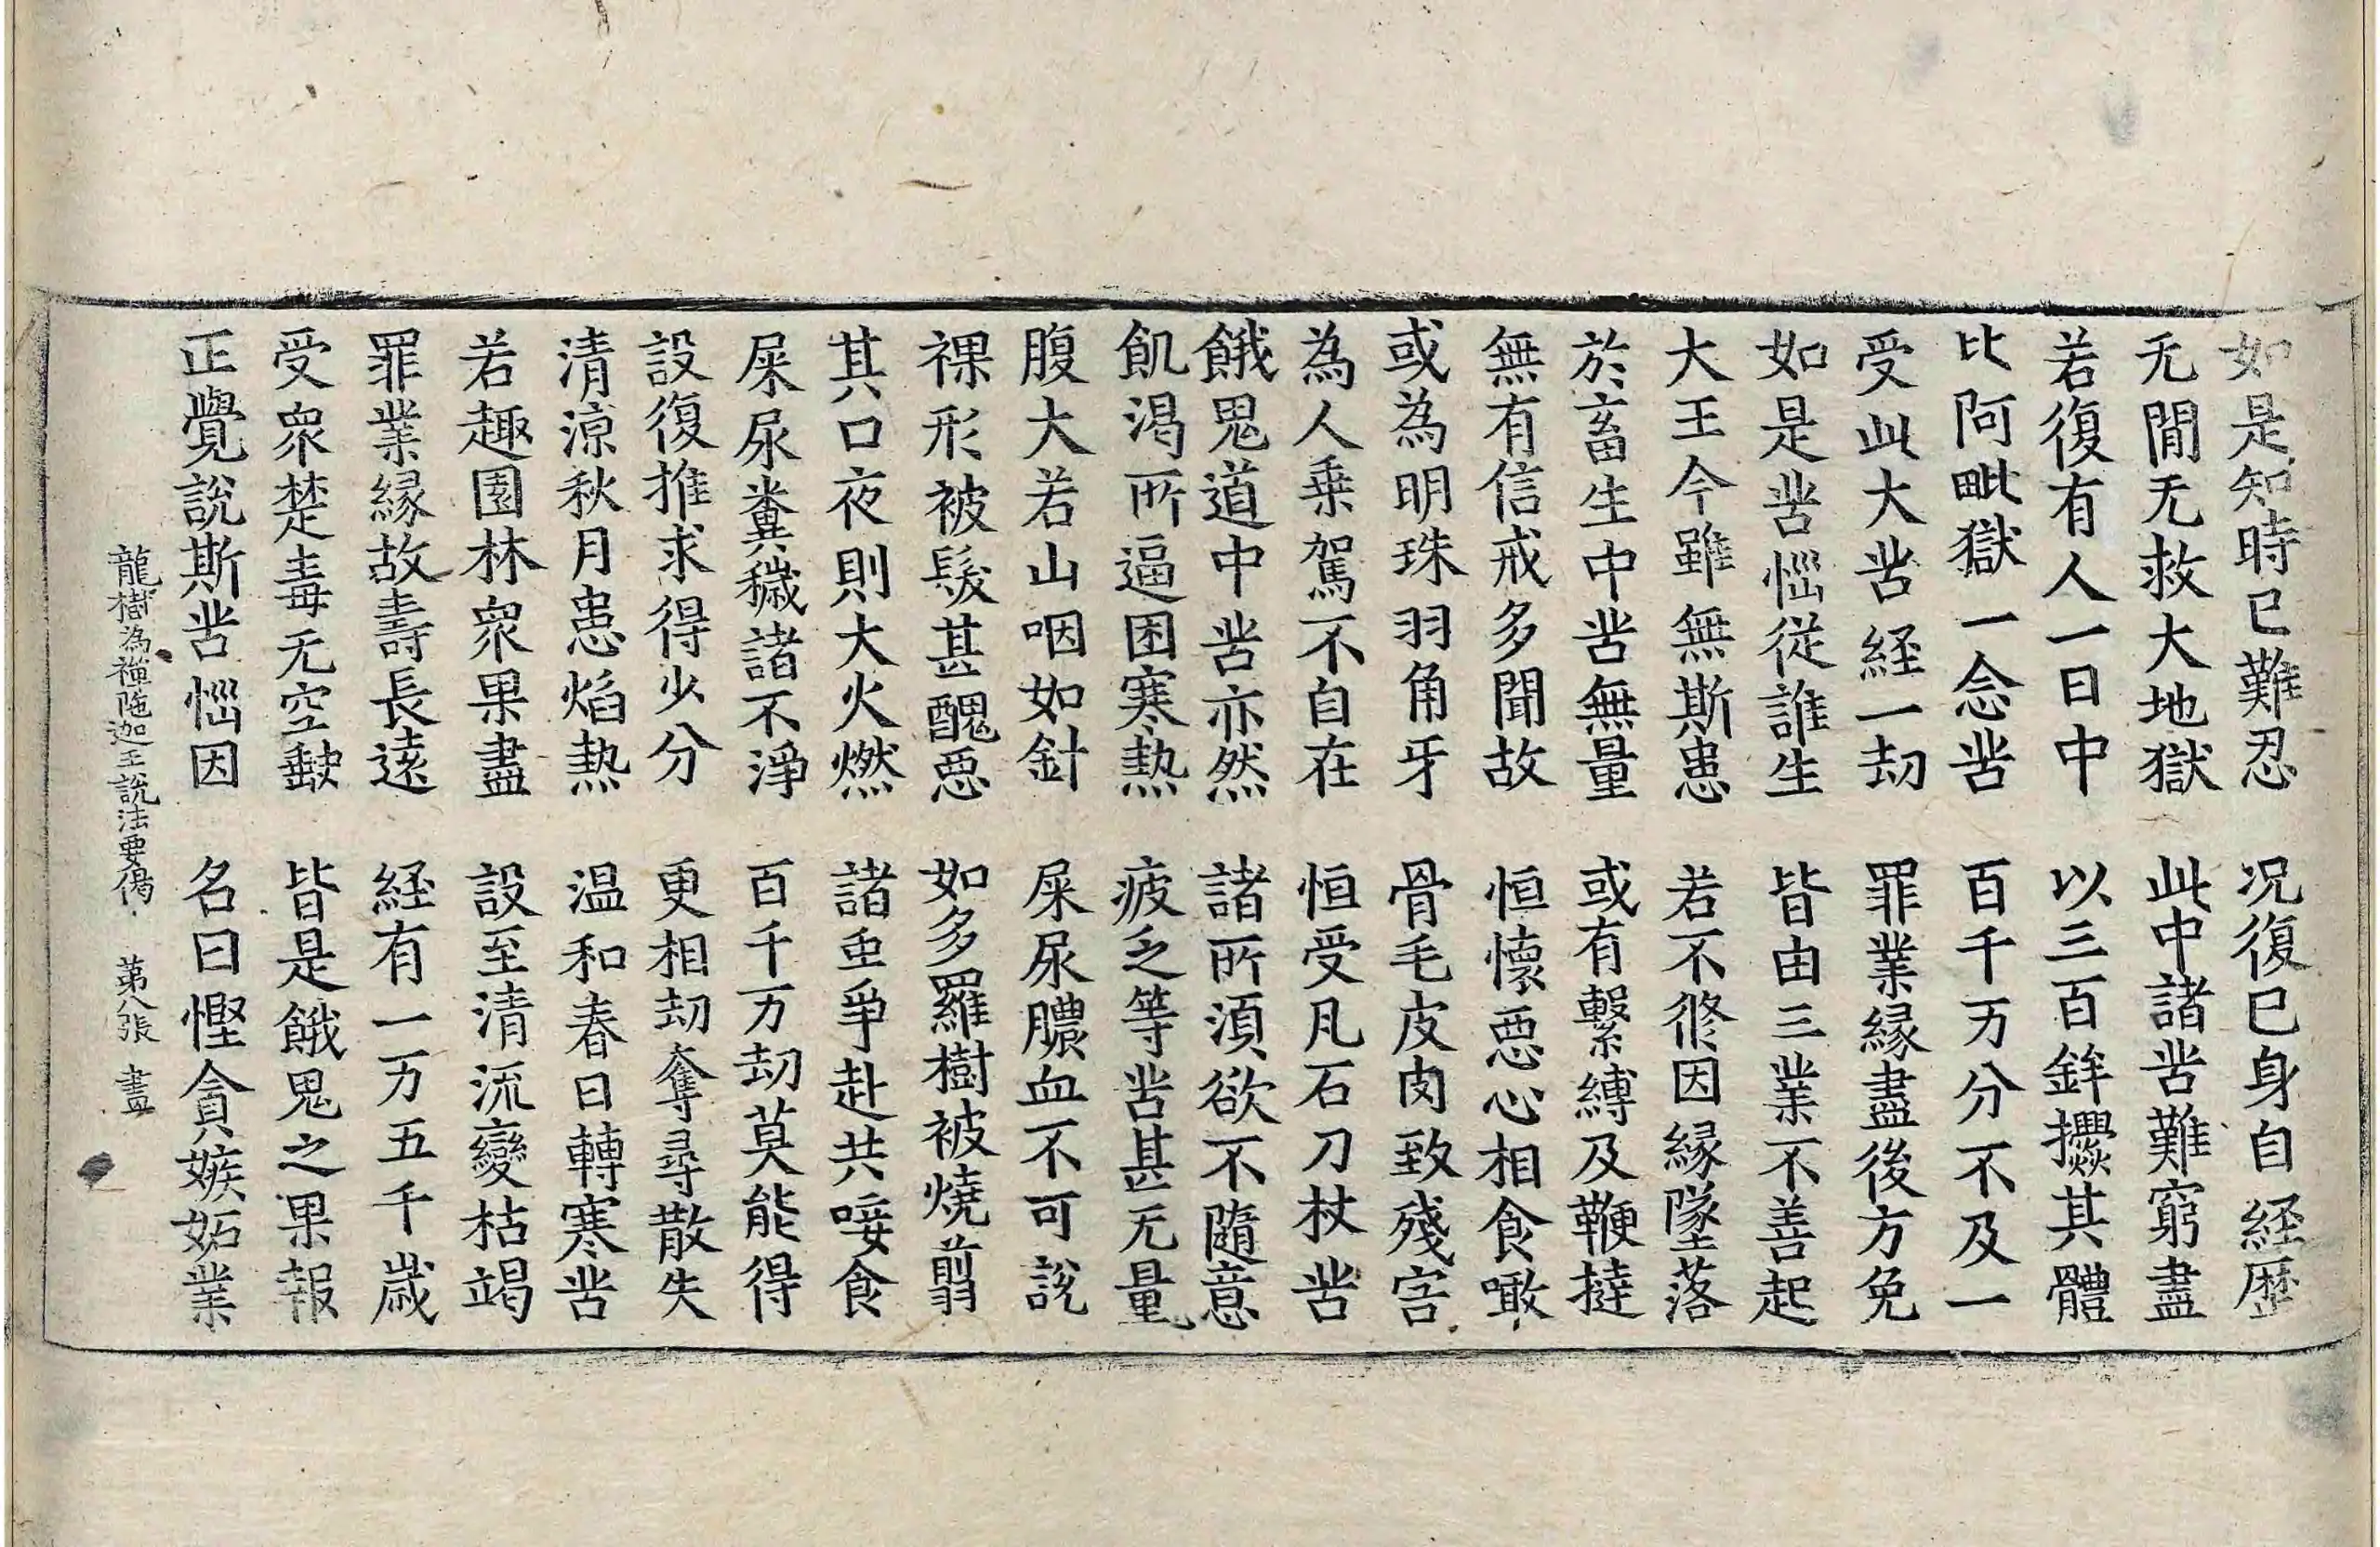 如是知時已難忍　況復己身自經歷
无間无救大地獄　此中諸苦難窮盡
若復有人一日中　以三百鉾攢其體
比阿毗獄一念苦　百千万分不及一
受此大苦経一劫　罪業緣盡後方免
如是苦惱從誰生　皆由三業不善起
大王今雖無斯患　若不修因緣墜落
於畜生中苦無量　或有繫縛及鞭撻
無有信戒多聞故　恒懷惡心相食噉
或為明珠羽角牙　骨毛皮肉致殘害
為人乗駕不自在　恒受凡石刀杖苦
餓鬼道中苦亦然　諸所須欲不隨意
飢渇所逼困寒熱　疲乏等苦甚无量
腹大若山咽如針　屎尿膿血不可說
裸形被髮甚醜惡　如多羅樹被燒剪
其口夜則大火燃　諸虫爭赴共唼食
屎尿糞穢諸不淨　百千万劫莫能得
設復推求得少分　更相劫奪尋散失
清涼秋月患焰熱　温和春日轉寒苦
若趣園林衆果盡　設至清流變枯竭
罪業緣故壽長遠　経有一万五千歲
受衆楚毒无空缺　皆是餓鬼之果報
正覺說斯苦惱因　名曰慳貪嫉妬業
龍樹為禪陁迦王說法要偈　第八張　盡